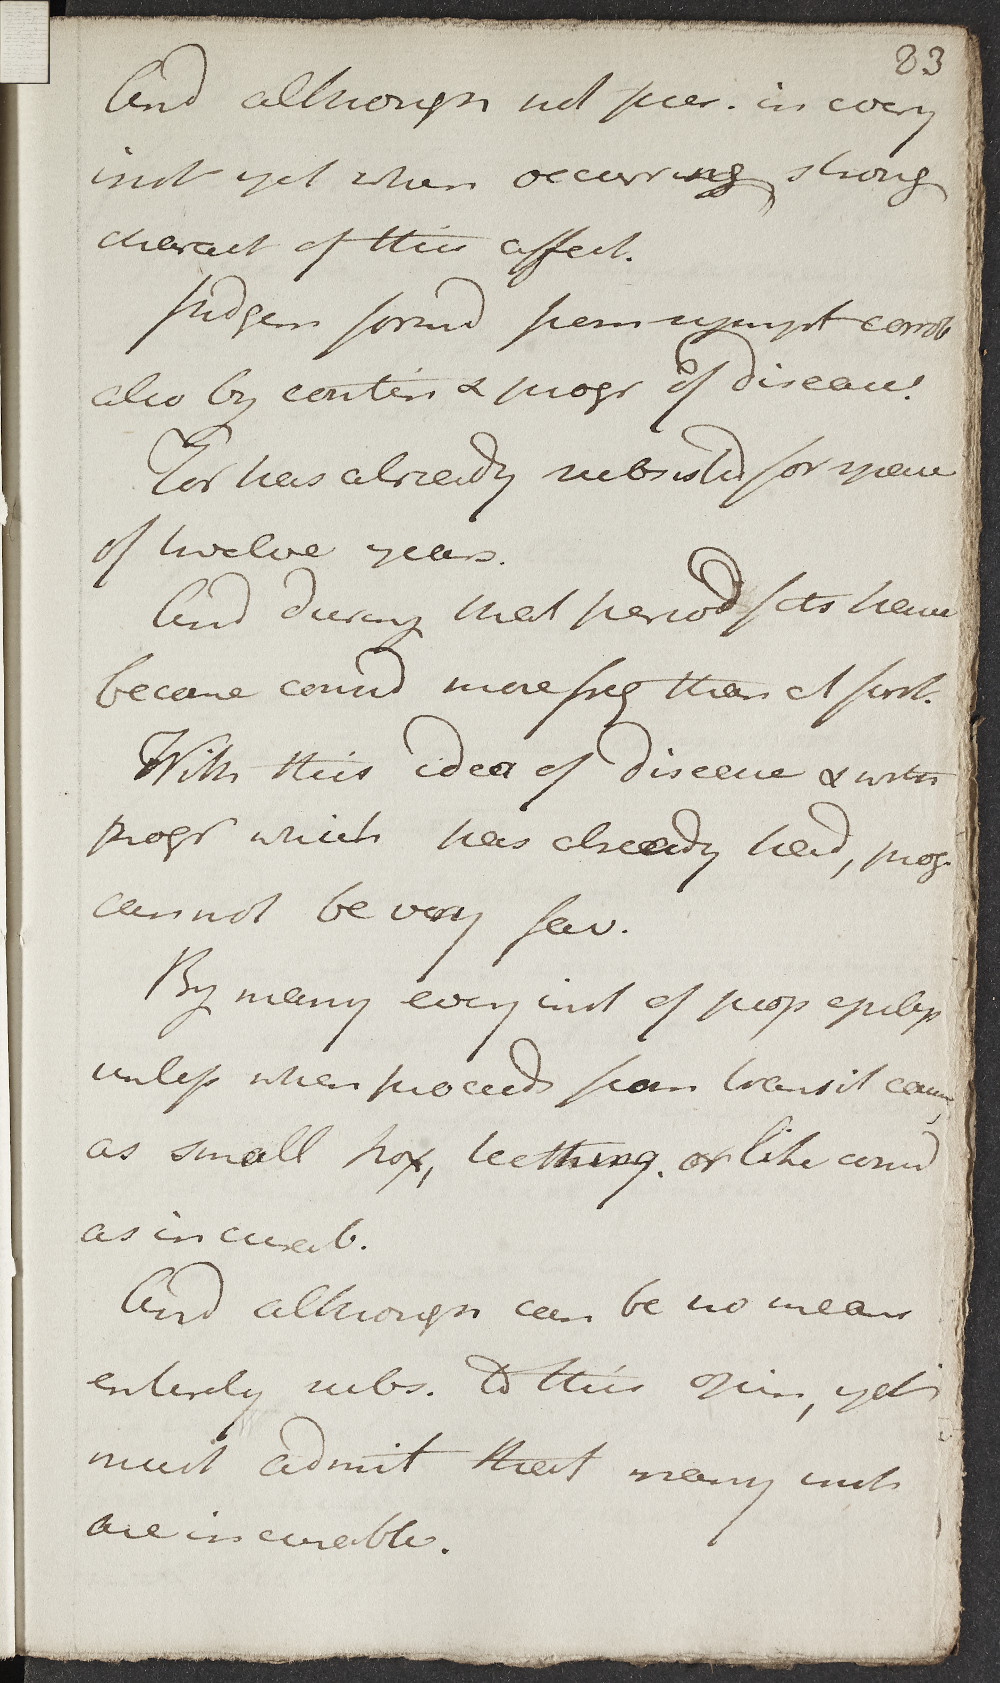 83
And although not pres. in every
inst yet when occurring, strong
charact of this affect.
Judgem formd from sympt corrob
also by contin & progr of disease.
For has already subsistd for space
of twelve years.
And during that period fits have
become consid more freq than at first.
With this idea of disease & with
progr which has already had, prog
cannot be very fav.
By many every inst of prop epilep
unless when proceeds from transit cause,
as small pox, teething. or like consid
as incurab.
And although can be no means
entirely subs. to this opin, yet
must admit that many inst
are incurable.